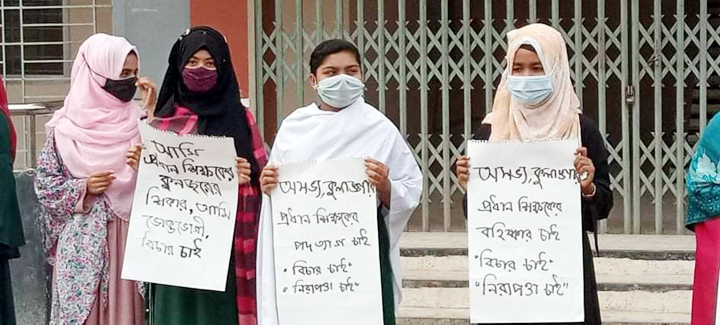 আমি
প্রধান শিক্ষকের
কুনজরের
শিকার, আমি
ভোক্তভোগী,
বিচার চাই
অসভ্য, কুলাঙ্গার
প্রধান শিক্ষকের
পদত্যাগ চাই
"বিচার চাই"
"নিরাপত্তা চাই"
অসভ্য, কুলাঙ্গার
প্রধান শিক্ষকের
বহিষ্কার চাই
"বিচার চাই"
"নিরাপত্তা চাই"